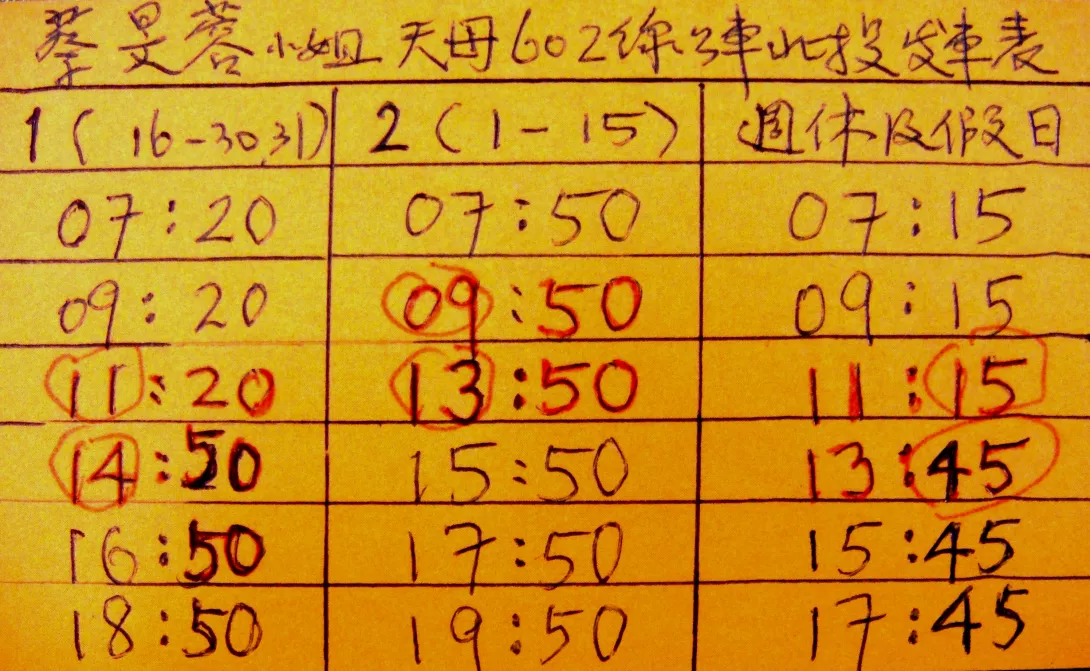 蔡旻蓉小姐天母602線公車北投发車表
1(16-30,31) 2(1-15) 週休及假日
07:20 07:50 07:15
09:20 09:50 09:15
11:20 13:50 11:15
14:50 15:50 13:45
16:50 17:50 15:45
18:50 19:50 17:45